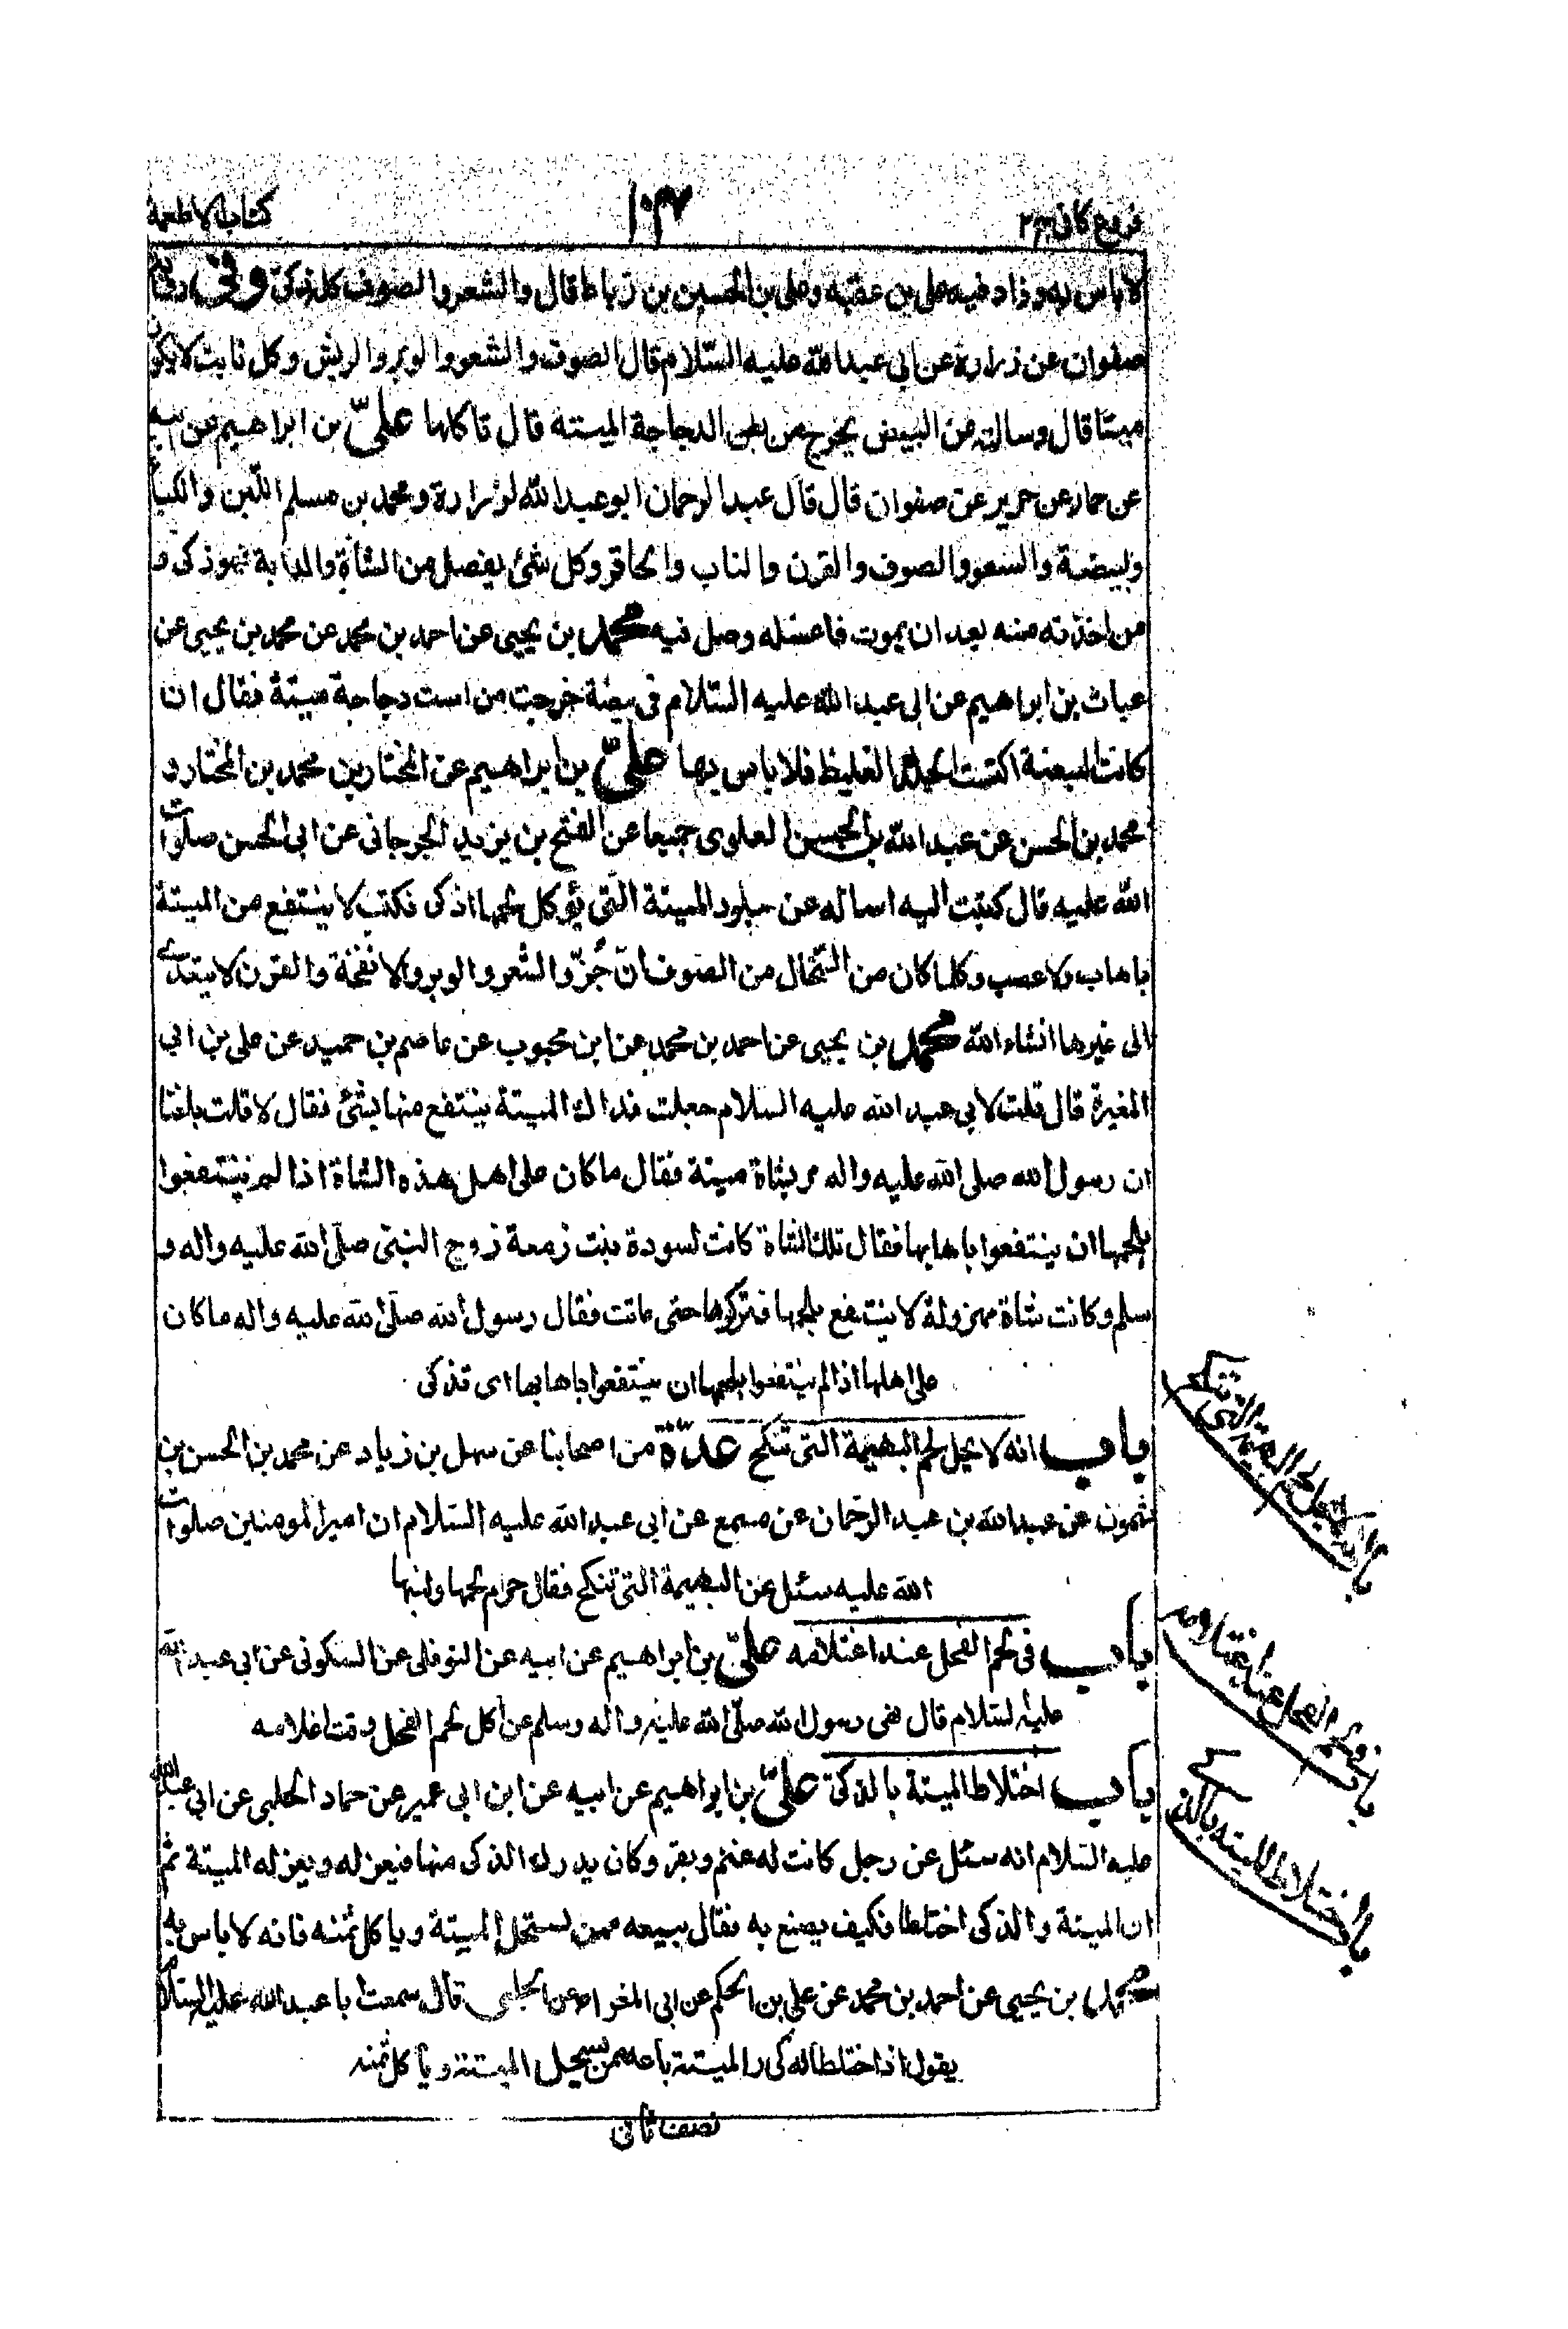 فروع كافى ج٢
١٠٣٧
كتاب الاطعمة
لا باس به وزاد فيه على بن عقبة وعلى بن الحسين بن رباط قال والشعر والصوف كله ذكى وفى رواية
صفوان عن زرارة عن ابى عبد الله عليه السّلام قال الصوف والشعر والوبر والريش وكل نابت لا يكون
ميتا قال وسالته عن البيض يخرج من بطن الدجاجة الميته قال تاكلها علىّ بن ابراهيم عن ابيه
عن حماد عن حريز عن صفوان قال قال عبد الرحمان ابو عبد الله لزرارة ومحمد بن مسلم اللّبن واللّبأ
ولبيضة والشعر والصوف والقرن والناب والحافر وكل شئ يفصل من الشاة والدابة فهو ذكى و
من اخذته منه بعد ان يموت فاغسله وصل فيه محمد بن يحيى عن احمد بن محمد عن محمد بن يحيى عن
غياث بن ابراهيم عن ابى عبد الله عليه السّلام فى بيضة خرجت من است دجاجة ميتة فقال ان
كانت البيضة اكتست الجلد الغليظ فلا باس بها علىّ بن ابراهيم عن المختار بن محمد بن المختار و
محمد بن الحسن عن عبد الله بن الحسن العلوى جميعا عن الفتح بن يزيد الجرجانى عن ابى الحسن صلوات
الله عليه قال كتبت اليه اساله عن جلود الميتة الّتى يؤكل لحمها اذكى فكتب لا ينتفع من الميتة
باهاب ولا عصب وكلما كان من السّخال من الصوف ان جُزّ والشعر والوبر والانفخة والقرن لا يتعدى
الى غيرها انشاء الله محمد بن يحيى عن احمد بن محمد عن ابن محبوب عن عاصم بن حميد عن على بن ابى
المغيرة قال قلت لابى عبد الله عليه السلام جعلت فداك الميتة ينتفع منها بشئ فقال لا قلت بلغنا
ان رسول الله صلى الله عليه واله مر بشاة ميتة فقال ما كان على اهل هذه الشاة اذا لم ينتفعوا
بلحمها ان ينتفعوا باهابها فقال تلك الشاة كانت لسودة بنت زمعة زوج النبىّ صلّى الله عليه واله و
سلم وكانت شاة مهزولة لا ينتفع بلحمها فتركوها حتى ماتت فقال رسول الله صلّى الله عليه واله ما كان
على اهلها اذا لم ينتفعوا بلحمها ان ينتفعوا باهابها اى تذكى
باب انه لا يحل لحم البهيمة التى تنكح عدّة من اصحابنا عن سهل بن زياد عن محمد بن الحسن بن
شمون عن عبد الله بن عبد الرّحمان عن مسمع عن ابى عبد الله عليه السّلام ان امير المومنين صلوات
الله عليه سئل عن البهيمة التى تنكح فقال حرام لحمها ولبنها
باب فى لحم الفحل عند اغتلامه علىّ بن ابراهيم عن ابيه عن النوفلى عن السكونى عن ابى عبد الله
عليه السّلام قال نهى رسول الله صلّى الله عليه واله وسلم عن اكل لحم الفحل وقت اغلامه
باب اختلاط الميتة بالذكى علىّ بن ابراهيم عن ابيه عن ابن ابى عمير عن حماد الحلبى عن ابى عبد الله
عليه السّلام انه سئل عن رجل كانت له غنم وبقر وكان يدرك الذكى منها فيعزله ويعزله الميتة ثم
ان الميتة والذكى اختلطا فكيف يصنع به فقال يبيعه ممن يستحل الميتة وياكل ثمنه فانه لا باس به
محمد بن يحيى عن احمد بن محمد عن على بن الحكم عن ابى المغرا عن الحلبى قال سمعت ابا عبد الله عليه السّلام
يقول اذا اختلط الذكى والميتة باعه ممن يستحل الميتة وياكل ثمنه
باب انه لا يحل لحم البهيمة التى تنكح
باب فى لحم الفحل عند اغتلامه
باب اختلاط الميته بالذكى
نصف ثانى